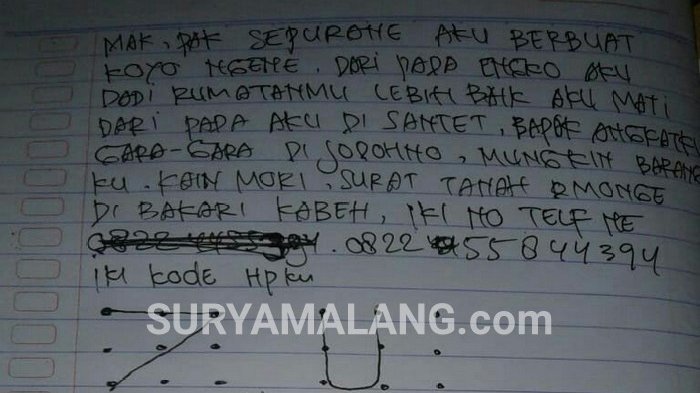 MAK, PAK SEPURANE AKU BERBUAT
KOYO NGENE, DARI PADA ENGKO AKU
DADI RUMATANMU LEBIH BAIK AKU MATI
DARI PADA AKU DI SANTET, BAPAK ANGKATKU
GARA-GARA DI JODOHNO, MUNGKIN BARANG
KU. KAIN MORI, SURAT TANAH OMONGE
DI BAKARI KABEH, IKI NO TELF NE
0822 455844394
IKI KODE HPKU
SURYAMALANG.com